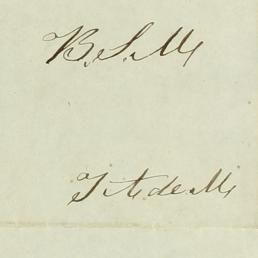 B. S. M.
J. A. de M.